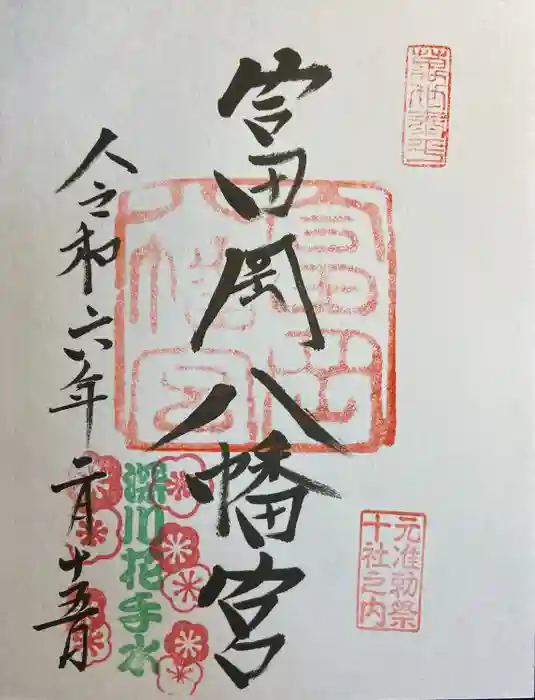 元准勅祭
十社之内
富岡八幡宮
富岡
八幡宮
深川花手水
令和六年二月十五日